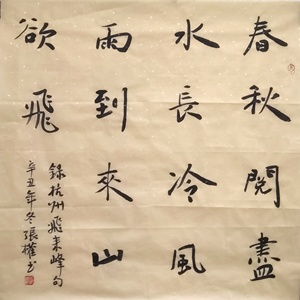 春秋閱盡
水長冷風
雨到來山
欲飛
錄杭州飛来峰句
辛丑年冬張權书